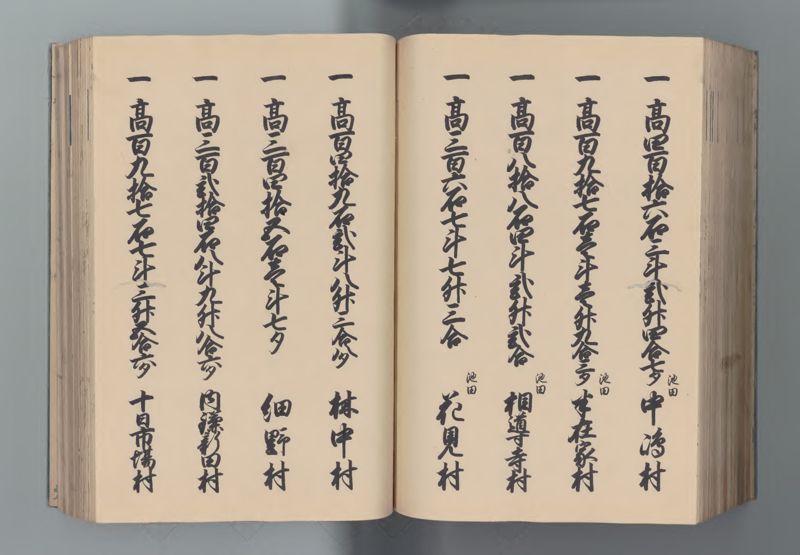 一 高四百拾六石三斗弐升四合七夕 池田 中嶋村
一 高百九拾七石壱斗壱升九合三夕 池田 半在家村
一 高百八拾八石四斗弐升弐合 池田 相道寺村
一 高三百六石七斗七升三合 池田 花見村
一 高百四拾九石弐斗八升三合八夕 林中村
一 高三百四拾五石壱斗七夕 細野村
一 高三百弐拾四石八斗九升八合六夕 内鎌新田村
一 高百九拾七石七斗三升五合六夕 十日市場村